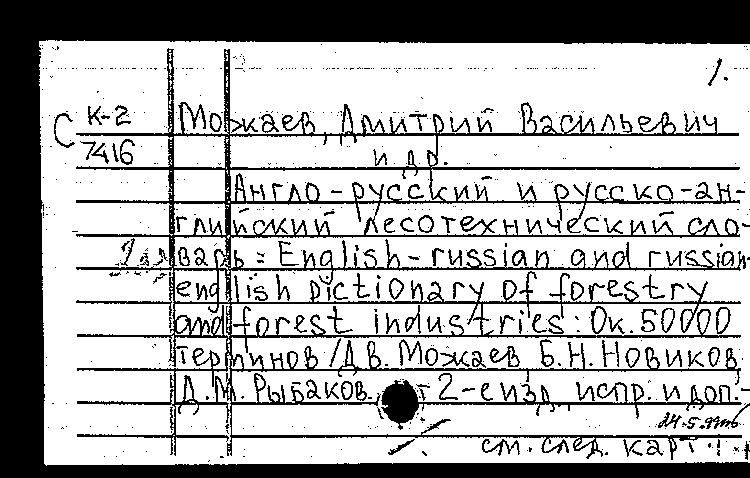 1.
С К-2 Можаев, Дмитрий Васильевич
7416 и др.
Англо-русский и русско-ан-
глийский лесотехнический сло-
варь = English-russian and russian-
english dictionary of forestry
and forest industries: Ок. 50000
терминов / Д.В. Можаев, Б.Н. Новиков,
Д.М. Рыбаков. 2-е изд., испр. и доп.-
см. след. карт.